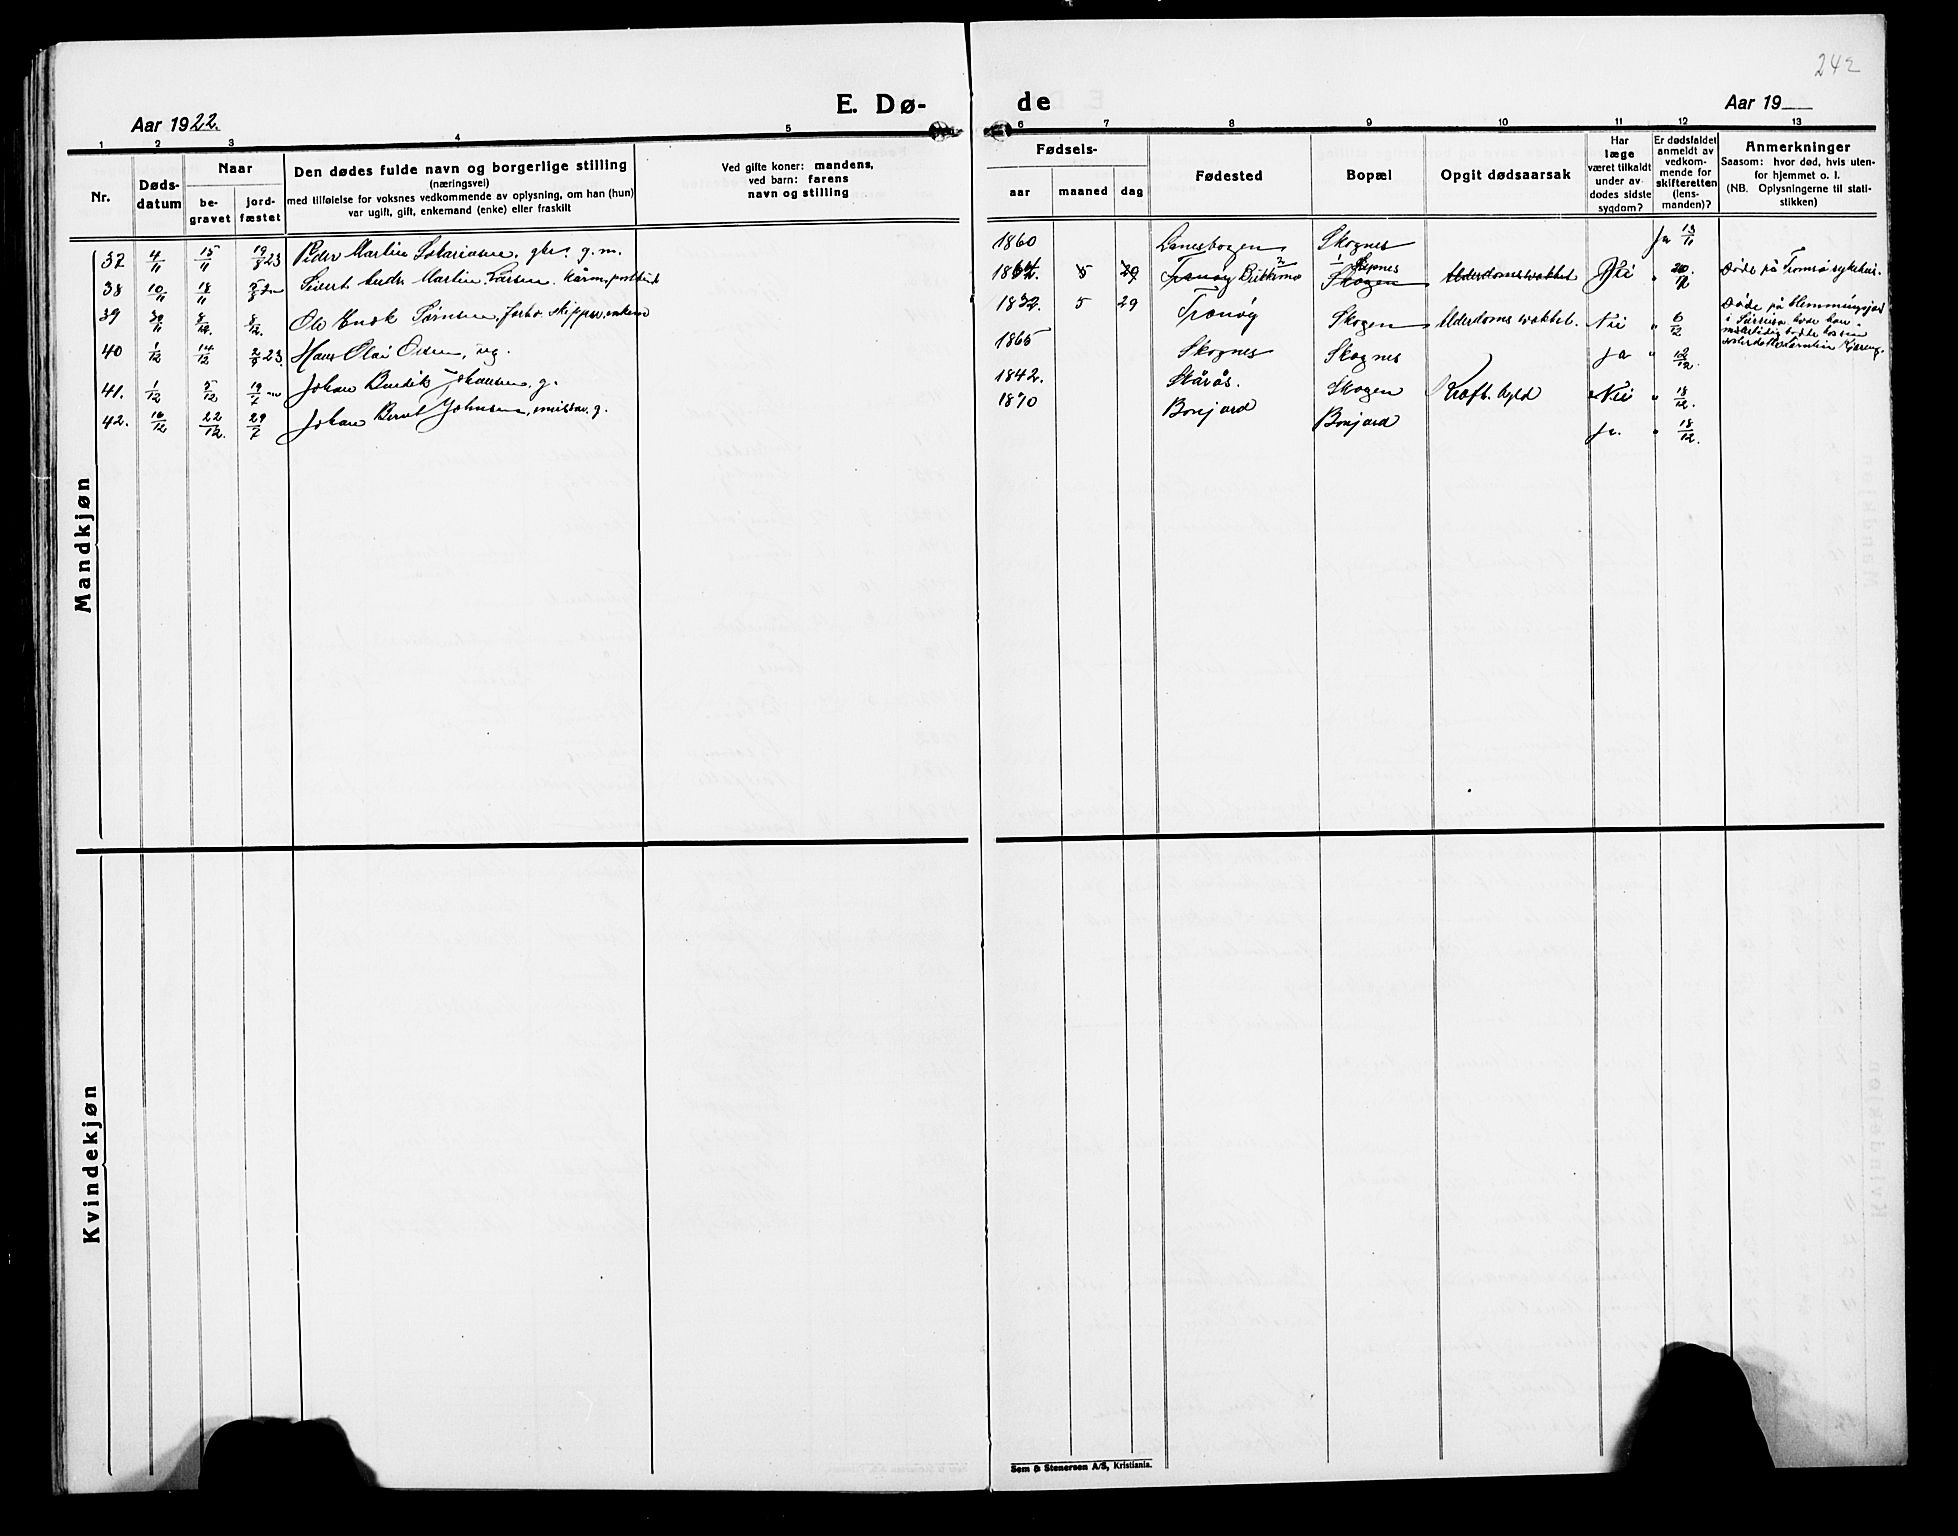 242
E. Dø- de
Aar 1922.
Aar 19
1 2 3 4 5 6 7 8 9 10 11 12 13
Nr.
Døds-
datum
Naar
be-
gravet
jord-
fæstet
Den dødes fulde navn og borgerlige stilling
(næringsvei)
med tilføielse for voksnes vedkommende av oplysning, om han (hun)
var ugift, gift, enkemand (enke) eller fraskilt
Ved gifte koner: mandens,
ved barn: farens
navn og stilling
Fødsels-
aar
maaned
dag
Fødested
Bopæl
Opgit dødsaarsak
Har
læge
været tilkaldt
under av-
dødes sidste
sygdom?
Er dødsfaldet
anmeldt av
vedkom-
mende for
skifteretten
(lens-
manden)?
Anmerkninger
Saasom: hvor død, hvis uten-
for hjemmet o. l.
(NB. Oplysningerne til stati-
stikken)
Mandkjøn
37 4/11 15/11 19/8 23 Peder Martin g. m. 1860 Skognes Ja 13/11
38 10/11 18/11 Sivert Andr. Martin Larsen 5 29 Tranøy Skogen Alderdomssvakhet Nei 20/12 Døde på Tromsø sykehus.
39 30/11 8/12. 8/12. Ole Enok Sørensen, skipper, enkem 1832 5 29 Tranøy Skogen Alderdomssvakhet. Nei " 6/12 Døde på
40 1/12 14/12 2/9 23. Hans Olai Olsen, ug. 1865 Skognes Skognes Ja " 12/12.
41. 1/12 5/12 19/7 Johan Johansen, g. 1842. Skårøs. Skogen Nei " 18/12.
42. 10/12 22/12. 29/7 Johan Bernt Johnsen, g. 1870 Bonjord Bonjord Ja. " 18/12.
Kvindekjøn
Sem & Stenersen A/S, Kristiania.